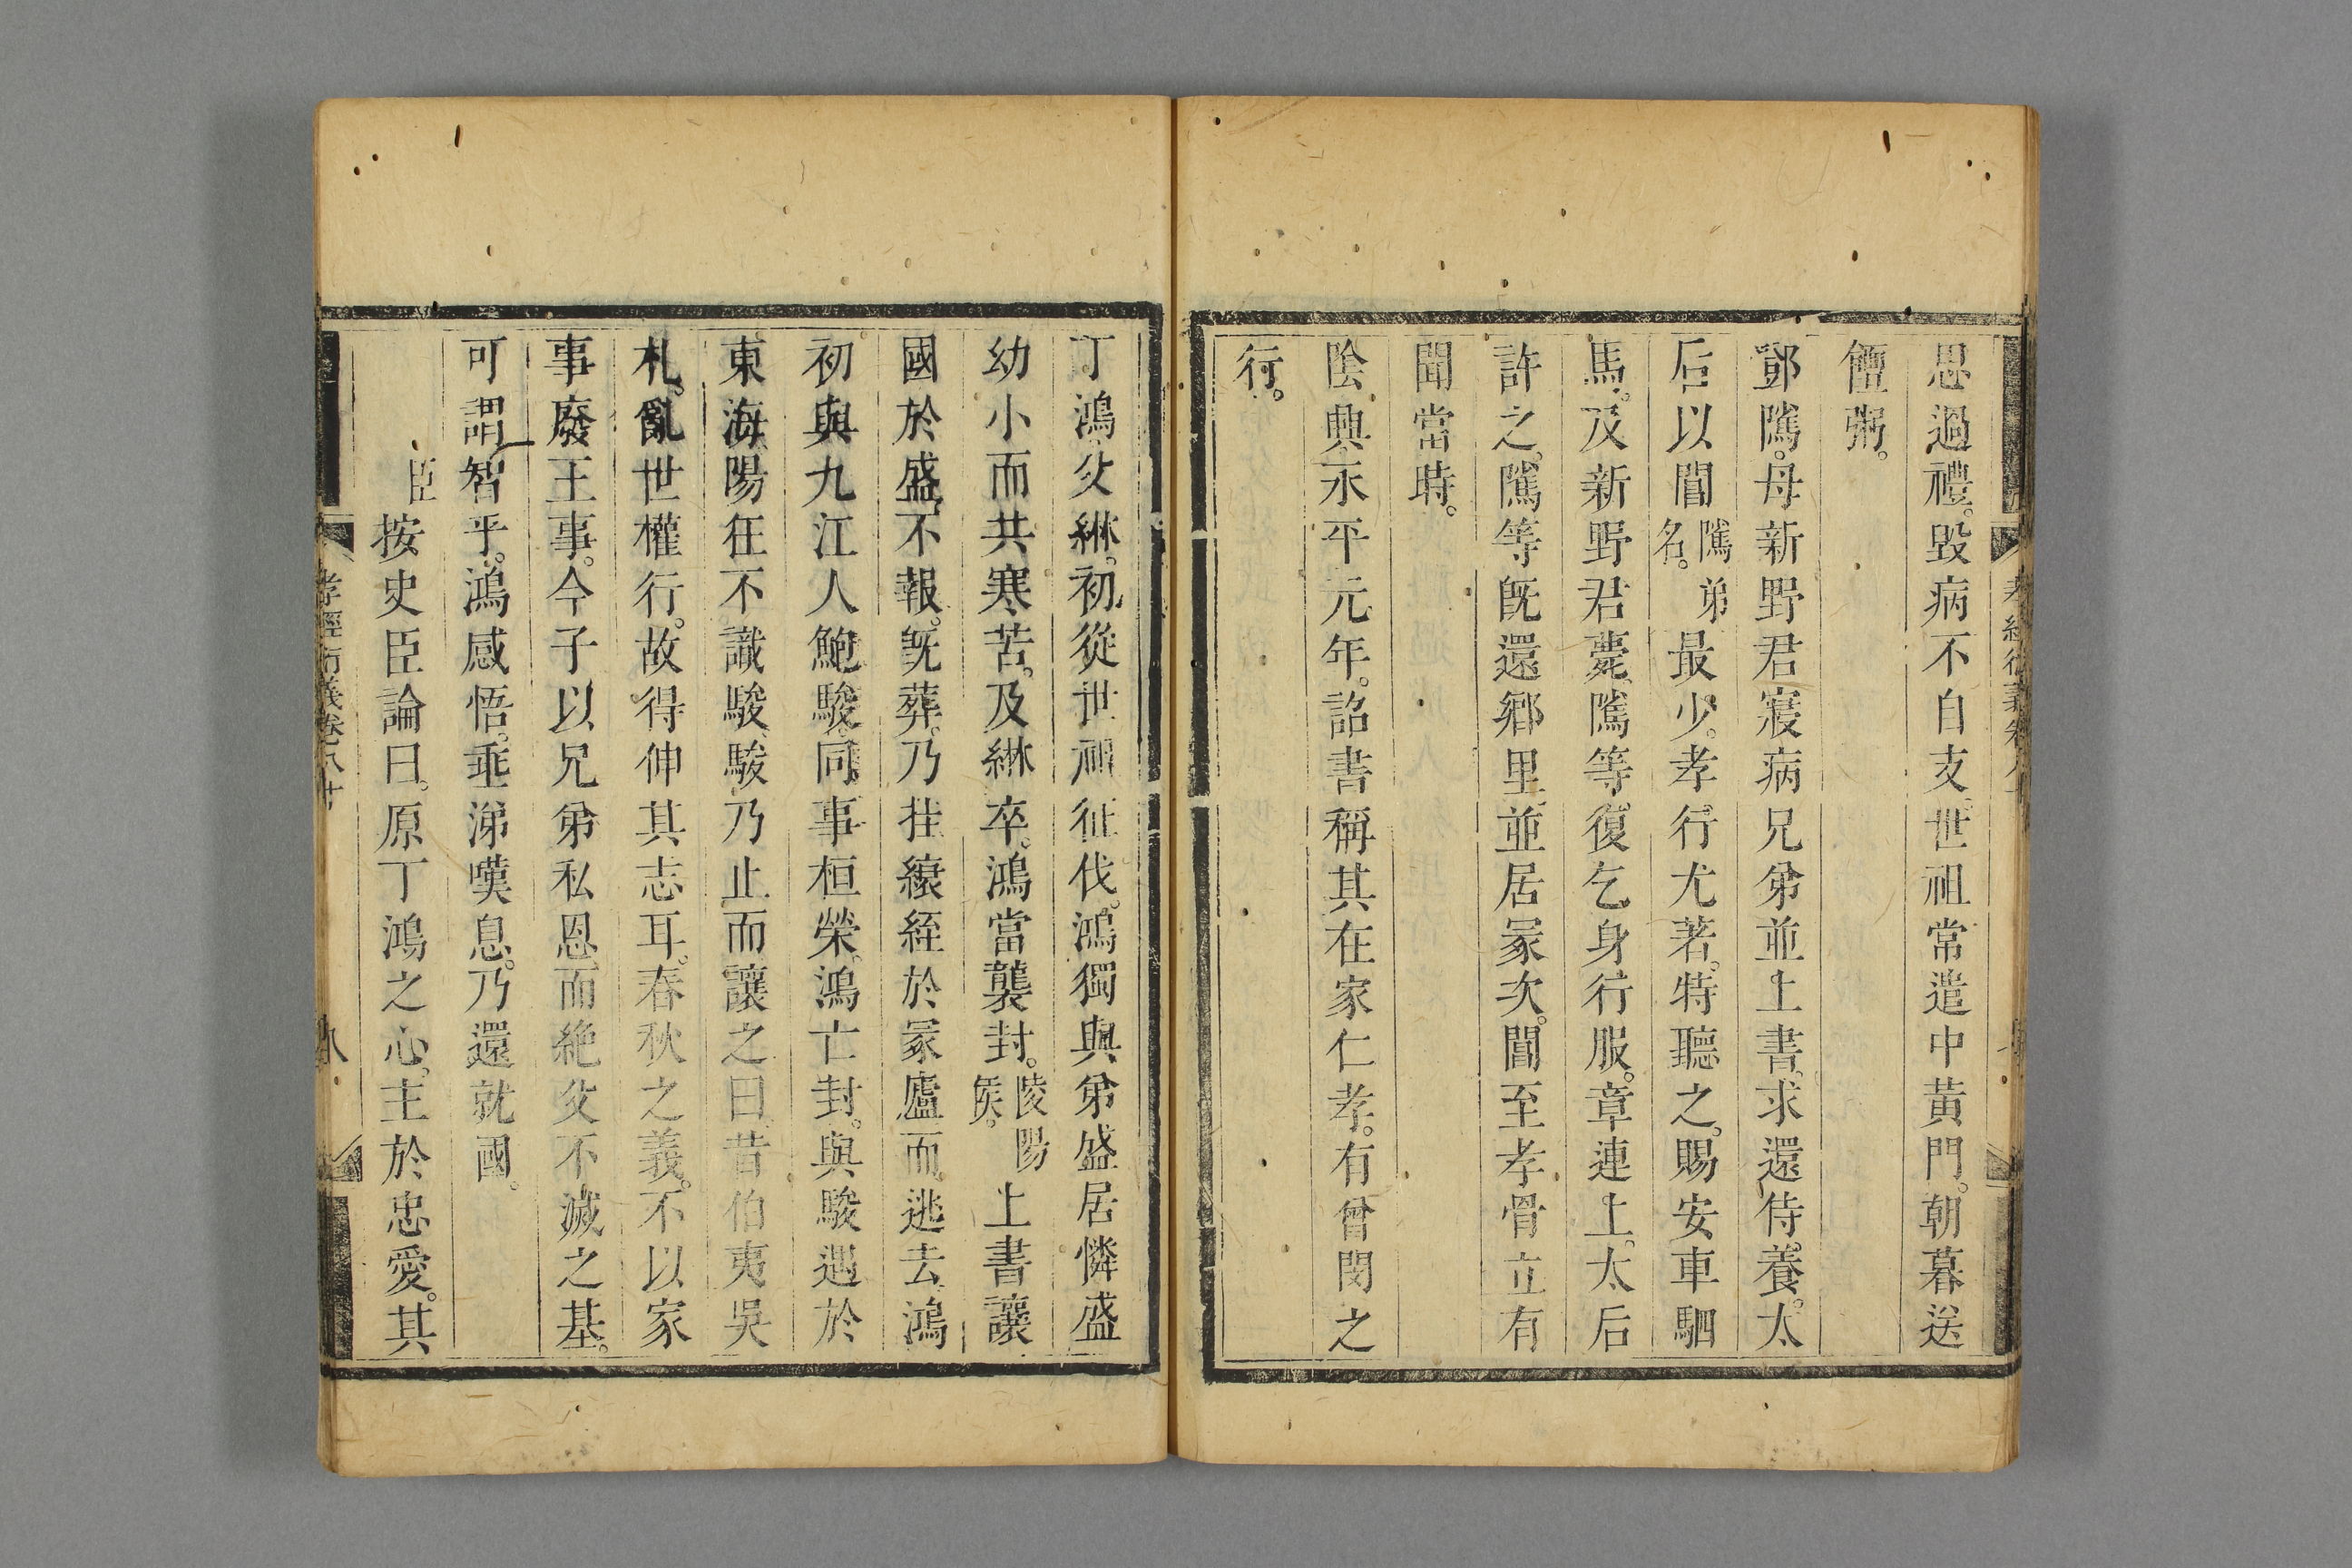 思過禮。毀病不自支。世祖常遣中黃門。朝暮送
饘粥。
鄧隲。母新野君寢病。兄弟並上書。求還侍養。太
后以閶隲弟名。最少。孝行尤著。特聽之。賜安車駟
馬。及新野君薨。隲等復乞身行服。章連上。太后
許之。隲等旣還鄉里。並居冡次。閶至孝骨立。有
聞當時。
陰興。永平元年。詔書稱其在家仁孝。有曾閔之
行。
丁鴻。父綝。初從世祖征伐。鴻獨與弟盛居。憐盛
幼小而共寒苦。及綝卒。鴻當襲封。陵陽侯。上書讓
國於盛。不報。旣葬。乃挂縗絰於冡廬而逃去。鴻
初與九江人鮑駿。同事桓榮。鴻亡封。與駿遇於
東海。陽狂不識駿。駿乃止而讓之曰。昔伯夷吳
札。亂世權行。故得伸其志耳。春秋之義。不以家
事廢王事。今子以兄弟私恩。而絶父不滅之基。
可謂智乎。鴻感悟。垂涕嘆息。乃還就國。
臣按史臣論曰。原丁鴻之心。主於忠愛。其
孝經衍義卷八十
八